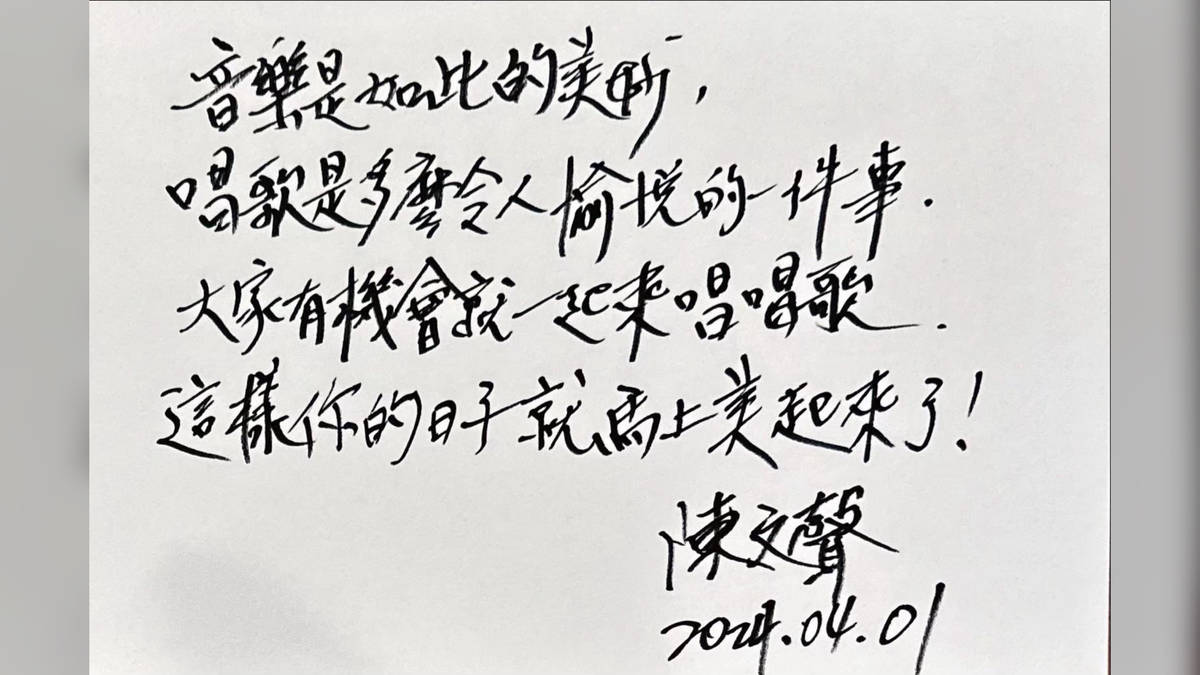 音樂是如此的美妙，
唱歌是多麼令人愉悅的一件事.
大家有機會就一起來唱唱歌.
這樣你的日子就馬上美起來了!
陳文聲
2024.04.01